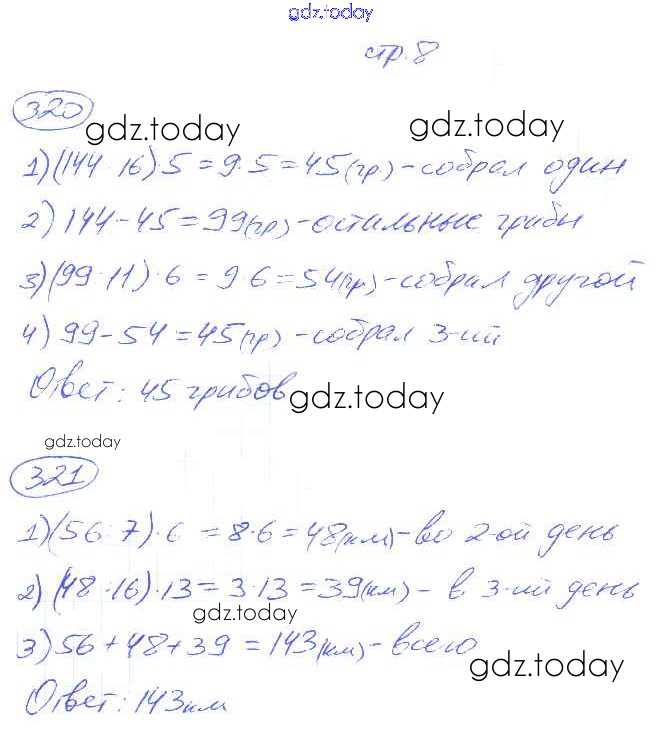 gdz.today
стр. 8
320
gdz.today gdz.today
1) (144:16)·5 = 9·5 = 45(гр.) - собрал один
2) 144 - 45 = 99(гр) - остальные грибы
3) (99:11)·6 = 9·6 = 54(гр) - собрал другой
4) 99 - 54 = 45(гр) - собрал 3-ий
Ответ: 45 грибов
gdz.today
gdz.today
321
1) (56:7)·6 = 8·6 = 48(км) - во 2-ой день
2) (48:16)·13 = 3·13 = 39(км) - в 3-ий день
gdz.today
3) 56 + 48 + 39 = 143(км) - всего
gdz.today
Ответ: 143км